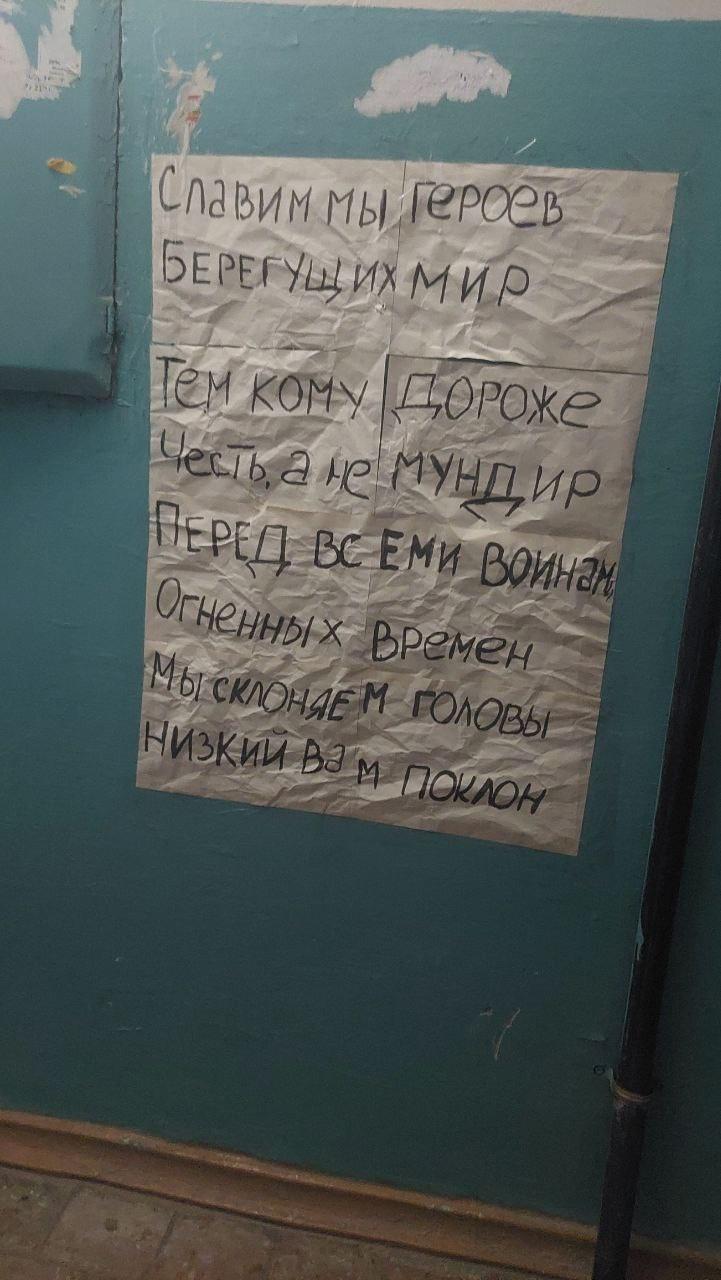 Славим мы героев
Берегущих мир
Тем кому дороже
Честь, а не мундир
Перед всеми воинами
Огненных времен
Мы склоняем головы
Низкий вам поклон